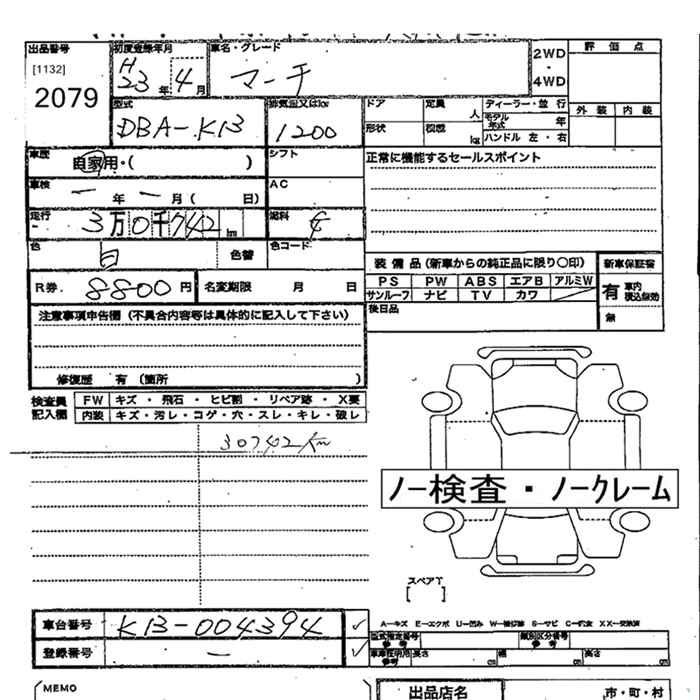 出品番号
[1132]
2079
初度登録年月
H
23 年 4 月
車名・グレード
マーチ
2WD
・
4WD
評 価 点
外 装 内 装
型式
DBA-K13
排気量又はkg
1200
ドア
定員 人
形状
積載 kg
ディーラー・並 行
モデル年式 年
ハンドル 左・右
車歴
自家用・( )
シフト
正常に機能するセールスポイント
車検
ー 年 ー 月( 日)
AC
走行
3万0千742 km
燃料
色
白
色替
色コード
装 備 品 (新車からの純正品に限り〇印)
PS PW ABS エアB アルミW
サンルーフ ナビ TV カワ
後日品
新車保証書
有 車内 積込有効
無
R券. 8800 円
名変期限 月 日
注意事項申告欄 (不具合内容等は具体的に記入して下さい)
修復歴 有 (箇所 )
検査員記入欄
FW キズ ・ 飛石 ・ ヒビ割 ・ リペア跡 ・ X要
内装 キズ・汚レ・コゲ・穴・スレ・キレ・破レ
30742km
ノー検査・ノークレーム
スペアT
[ ]
車台番号
K13-004394
登録番号
ー
A－キズ E－エクボ U－凹み W－補修跡 S－サビ C－腐食 XX－交換済
型式指定番号 参考
類別区分番号 参考
車庫証明用 参考 長さ cm 幅 cm 高さ cm
MEMO
出品店名
市・町・村